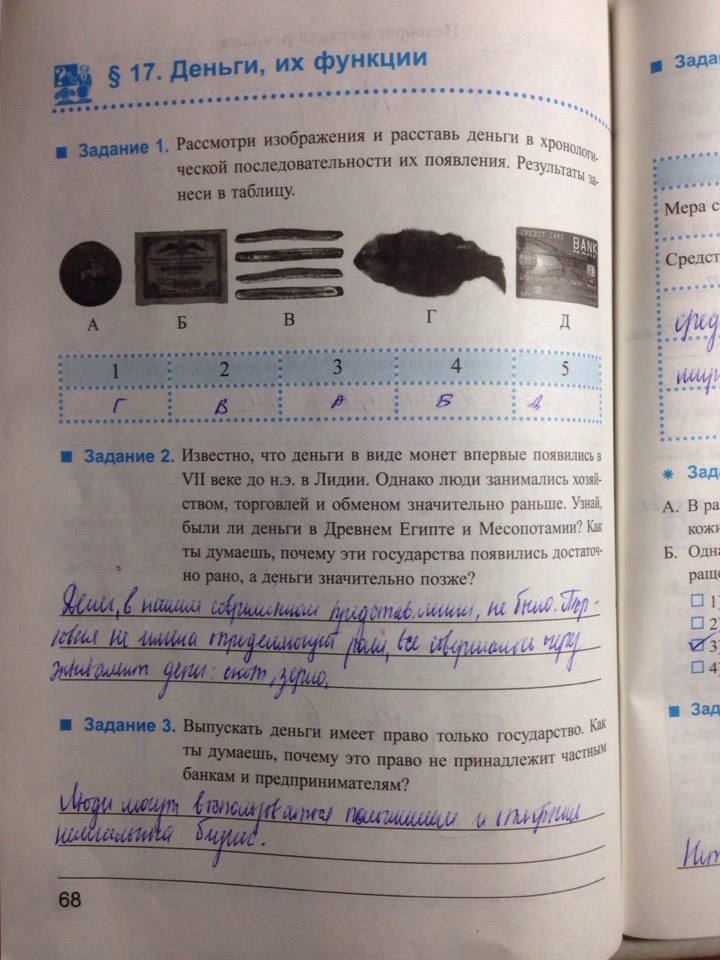 § 17. Деньги, их функции
Задание 1. Рассмотри изображения и расставь деньги в хронологи-
ческой последовательности их появления. Результаты за-
неси в таблицу.
CREDIT CARD BANK
А Б В Г Д
1 2 3 4 5
Г В А Б Д
Задание 2. Известно, что деньги в виде монет впервые появились в
VII веке до н.э. в Лидии. Однако люди занимались хозяй-
ством, торговлей и обменом значительно раньше. Узнай,
были ли деньги в Древнем Египте и Месопотамии? Как
ты думаешь, почему эти государства появились достаточ-
но рано, а деньги значительно позже?
Денег, в нашем современном представлении, не было. Тор-
говля не имела определяющей роли, все совершалось через
эквивалент денег: скот, зерно.
Задание 3. Выпускать деньги имеет право только государство. Как
ты думаешь, почему это право не принадлежит частным
банкам и предпринимателям?
Люди могут воспользоваться положением и
нелегальный бизнес.
68
Зада
Мера с
Средст
сред
Зад
А. В ра
кожи
Б. Одна
раще
1)
2)
3)
4)
Зад